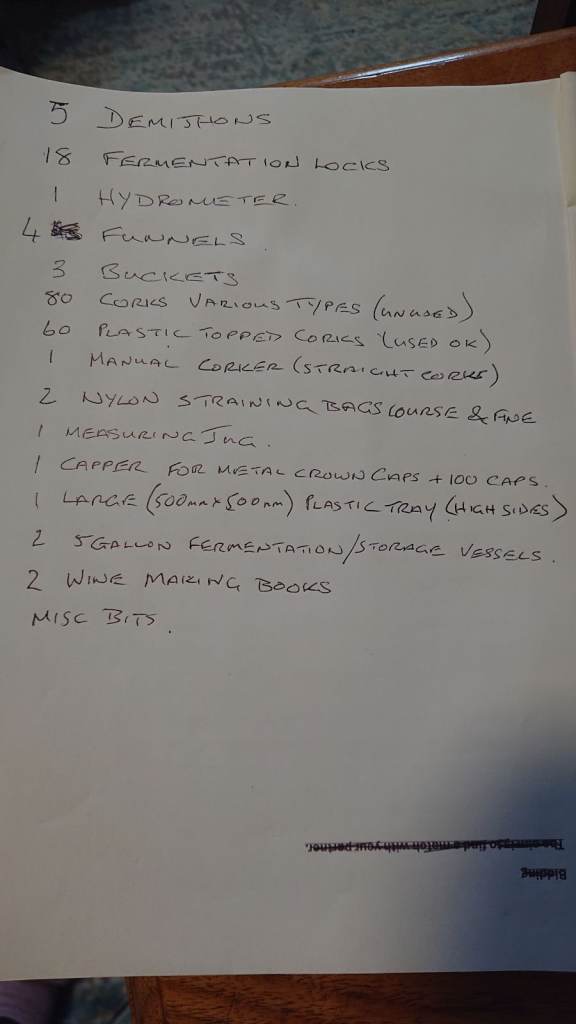 5 DEMIJHONS
18 FERMENTATION LOCKS
1 HYDROMETER.
4 FUNNELS.
3 BUCKETS
80 CORKS VARIOUS TYPES (UNUSED)
60 PLASTIC TOPPED CORKS (USED OK)
1 MANUAL CORKER (STRAIGHT CORKS)
2 NYLON STRAINING BAGS COURSE & FINE
1 MEASURING JUG.
1 CAPPER FOR METAL CROWN CAPS + 100 CAPS.
1 LARGE (500mm x 500mm) PLASTIC TRAY (HIGH SIDES)
2 5 GALLON FERMENTATION/STORAGE VESSELS.
2 WINE MAKING BOOKS
MISC BITS.
Bidding
The aim is to find a match with your partner.